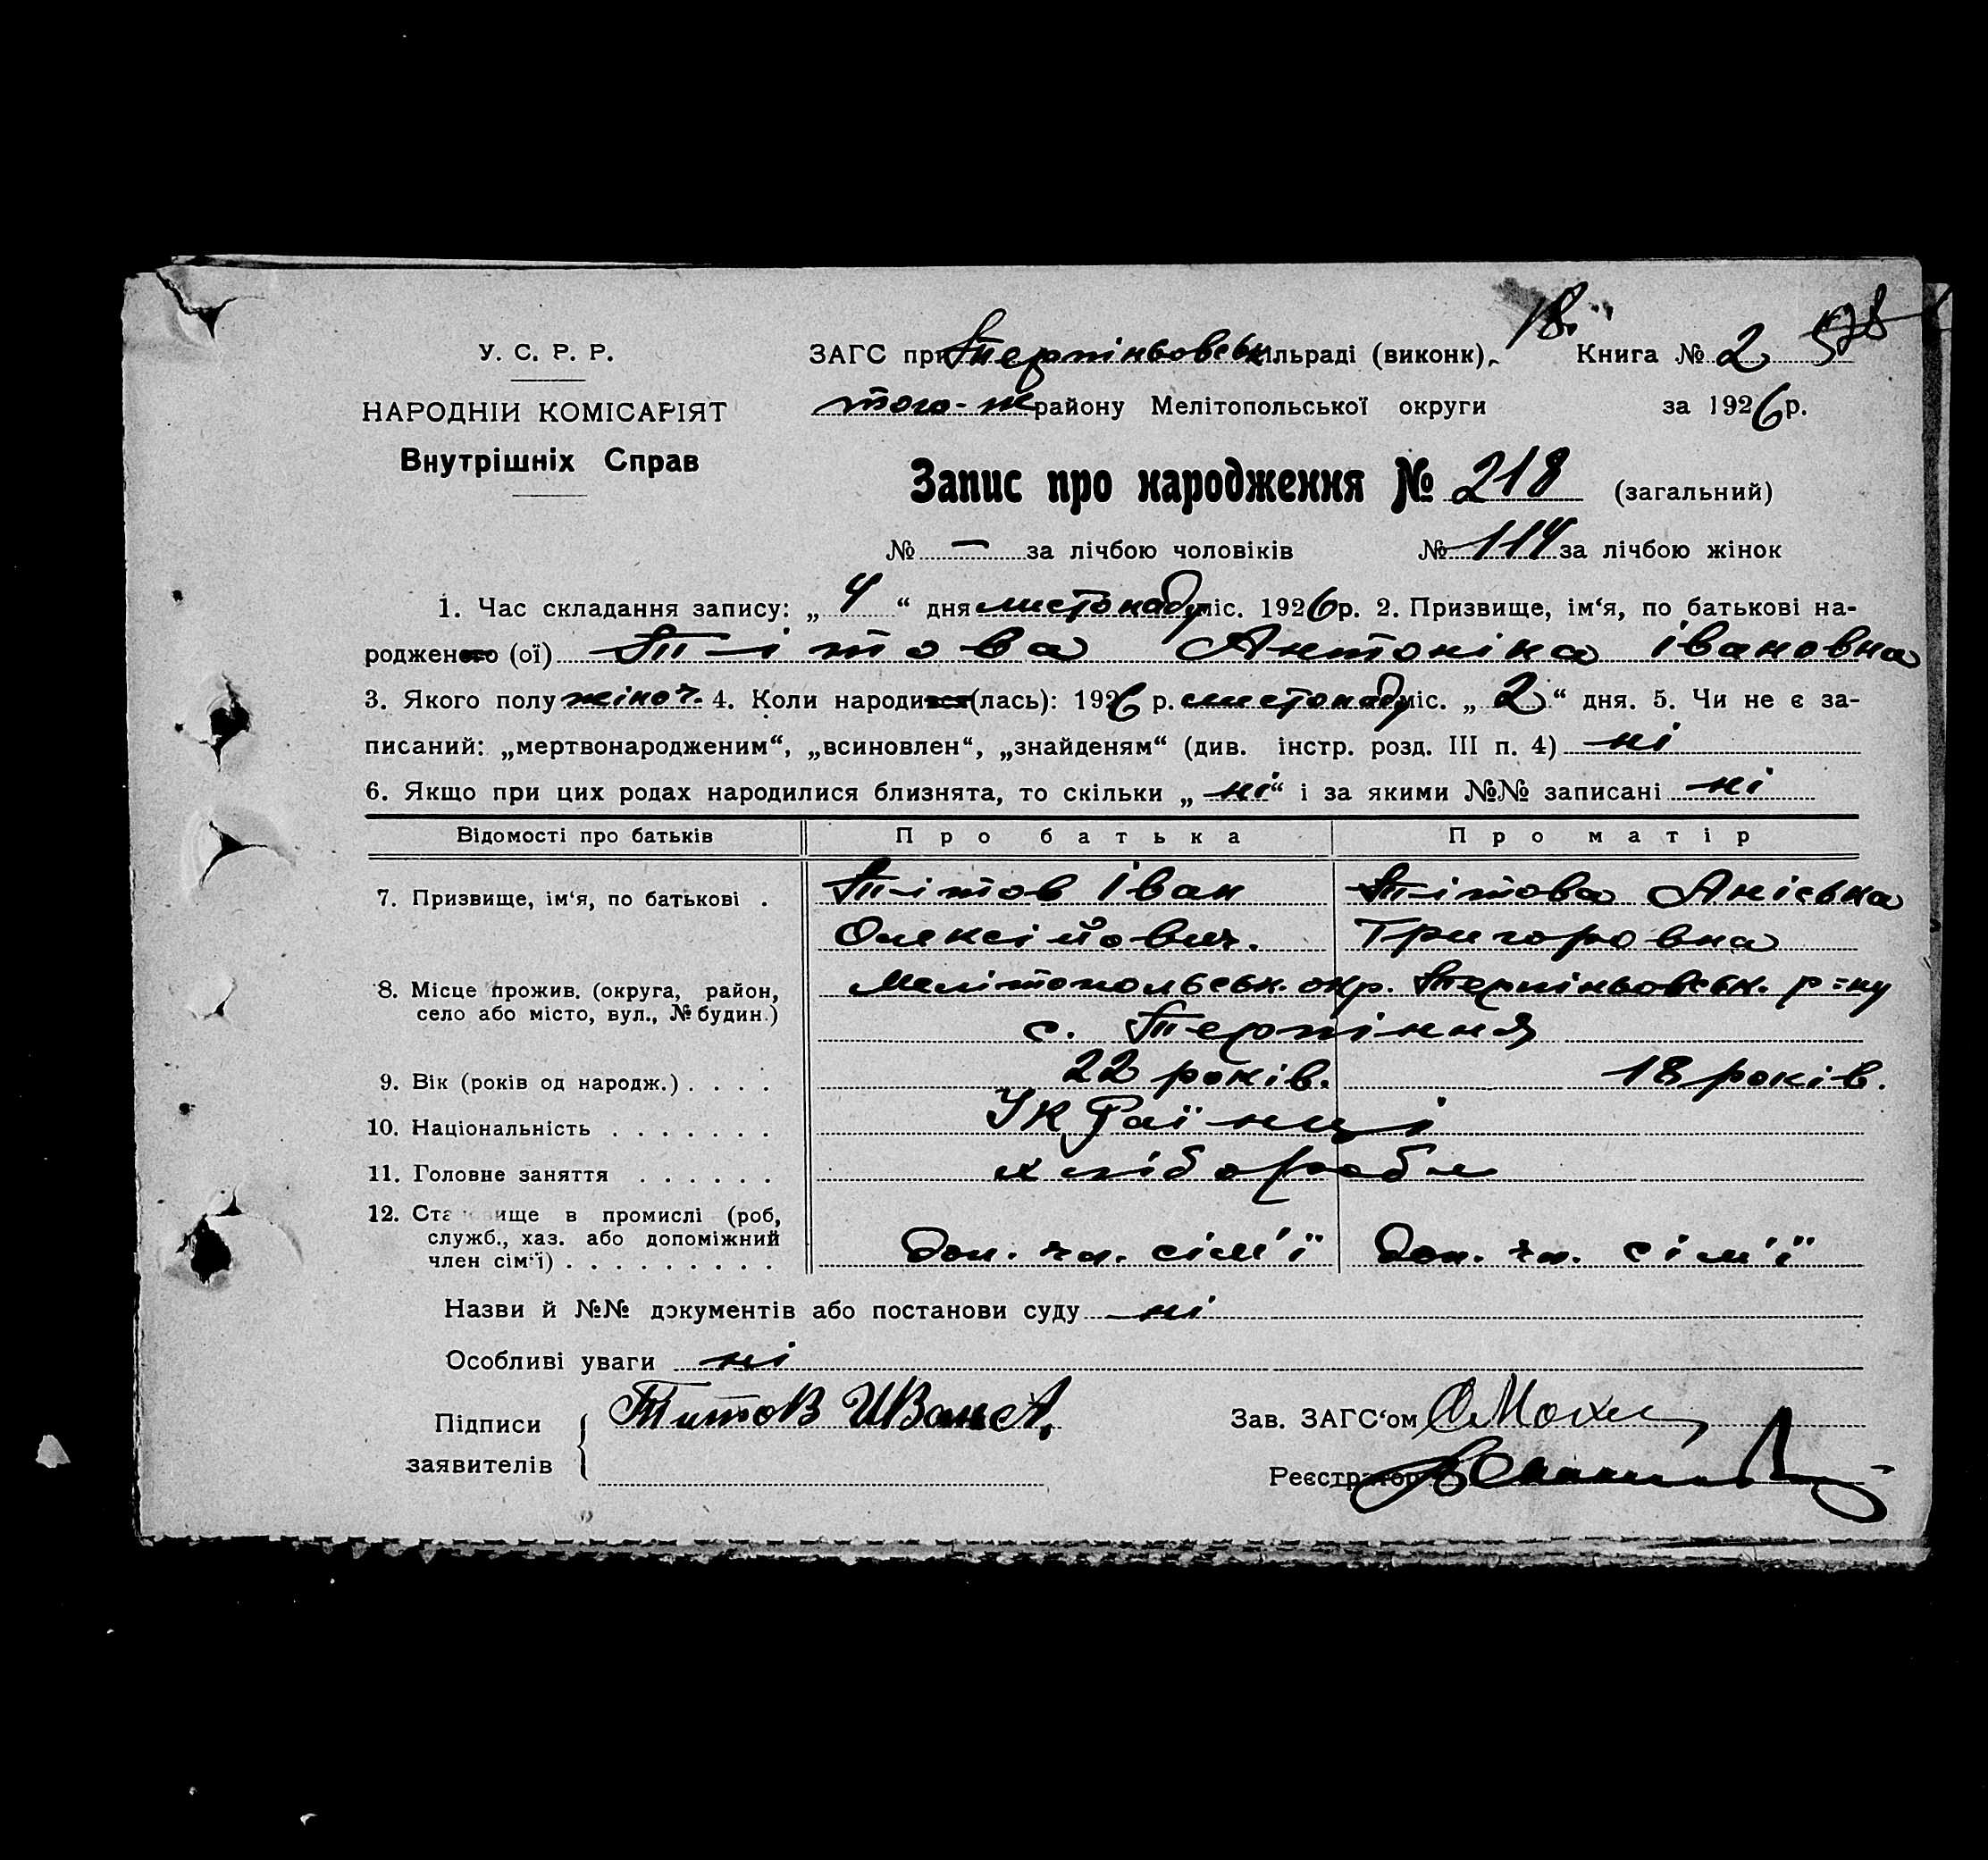 18.
У. С. Р. Р.
ЗАГС при Терпіньовськ сільраді (виконк). Книга № 2 578
НАРОДНІЙ КОМІСАРІЯТ
того-ж району Мелітопольської округи за 1926 р.
Внутрішніх Справ
Запис про народження № 218 (загальний)
№ — за лічбою чоловіків № 114 за лічбою жінок
1. Час складання запису: „ 4 “ дня листопаду міс. 1926 р. 2. Призвище, ім‘я, по батькові на-
родженого (ої) Тітова Антоніна Івановна
3. Якого полу жіноч. 4. Коли народився (лась): 1926 р. листопаду міс. „ 2 “ дня. 5. Чи не є за-
писаний: „мертвонародженим“, „всиновлен“, „знайденям“ (див. інстр. розд. III п. 4) ні
6. Якщо при цих родах народилися близнята, то скільки „ ні “ і за якими №№ записані ні
Відомості про батьків Про батька Про матір
7. Призвище, ім‘я, по батькові . Тітов Іван Тітова Аніська
Олексійович. Григоровна
8. Місце прожив. (округа, район, Мелітопольськ. окр. Терпіньовськ. р=ну
село або місто, вул., № будин.) с. Терпіння
9. Вік (років од народж.) . . . . 22 років. 18 років.
10. Національність . . . . . . . Українці
11. Головне заняття . . . . . . хлібороби
12. Становище в промислі (роб,
служб., хаз. або допоміжний
член сім‘ї) . . . . . . . . . доп. чл. сім'ї доп. чл. сім'ї
Назви й №№ документів або постанови суду ні
Особливі уваги ні
Підписи Титов Иван А.
Зав. ЗАГС‘ом
заявителів
Реєстратор